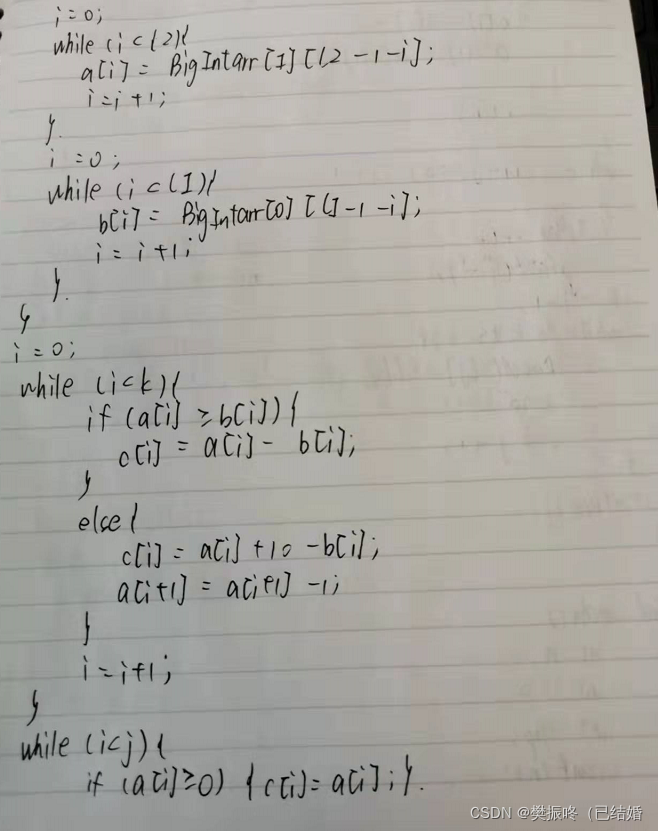 i=0;
while (i<l2){
a[i] = BigIntarr[1][l2-1-i];
i=i+1;
}.
i=0;
while (i<l1){
b[i] = BigIntarr[0][l1-1-i];
i = i+1;
}.
}
i=0;
while (i<k){
if (a[i] ≥b[i]){
c[i] = a[i] - b[i];
}
else{
c[i] = a[i] +10 -b[i];
a[i+1] = a[i+1] -1;
}
i=i+1;
}
while (i<j){
if (a[i]≥0) {c[i]= a[i];}.
CSDN @樊振咚（已结婚